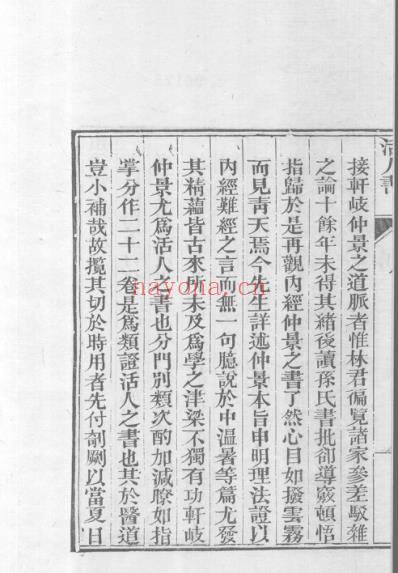 活人書
接軒岐仲景之道脈者惟林君偏覽諸家參差駁雜
之論十餘年未得其緒後讀孫氏書批郤導竅頓悟
指歸於是再觀內經仲景之書了然心目如撥雲霧
而見靑天焉今先生詳述仲景本旨申明理法證以
內經難經之言而無一句臆說於中溫暑等篇尤發
其精蘊皆古來所未及爲學之津梁不獨有功軒岐
仲景尤爲活人之書也分門別類次酌加減瞭如指
掌分作二十二卷是爲類證活人之書也其於醫道
豈小補哉故攬其切於時用者先付剞劂以當夏日
nayona.cn